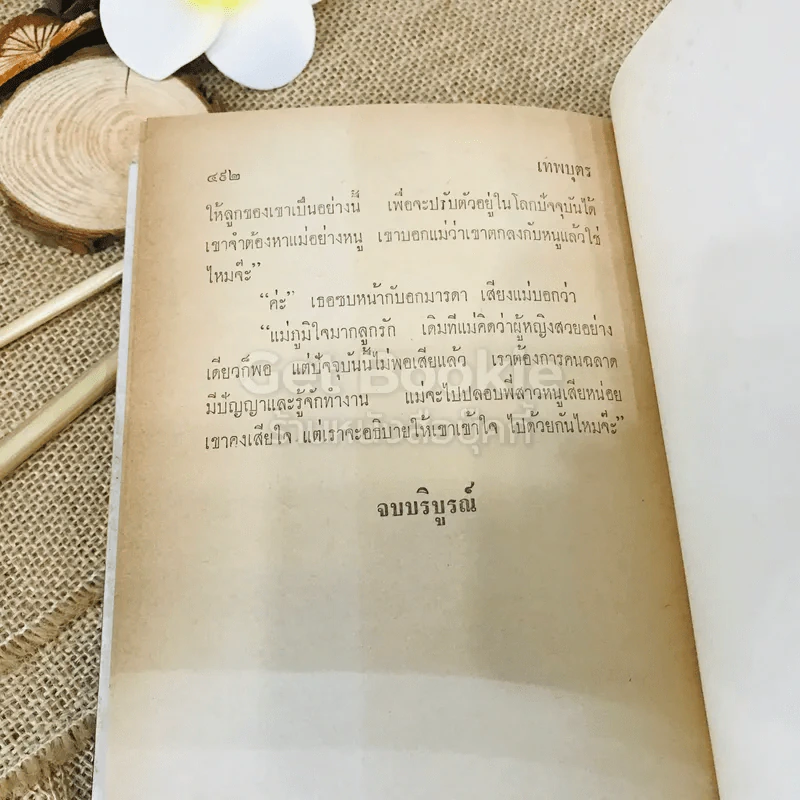 ๔๙๒ เทพบุตร
ให้ลูกของเขาเป็นอย่างนี้ เพื่อจะปรับตัวอยู่ในโลกปัจจุบันได้
เขาจำต้องหาแม่อย่างหนู เขาบอกแม่ว่าเขาตกลงกับหนูแล้วใช่
ไหมจ๊ะ”
“ค่ะ” เธอซบหน้ากับอกมารดา เสียงแม่บอกว่า
“แม่ภูมิใจมากลูกรัก เดิมทีแม่คิดว่าผู้หญิงสวยอย่าง
เดียวก็พอ แต่ปัจจุบันนี้ไม่พอเสียแล้ว เราต้องการคนฉลาด
Get Bookie
มีปัญญาและรู้จักทำงาน แม่จะไปปลอบพี่สาวหนูเสียหน่อย
ร้านหนังสือลุคกี้
เขาคงเสียใจ แต่เราจะอธิบายให้เขาเข้าใจ ไปด้วยกันไหมจ๊ะ”
จบบริบูรณ์